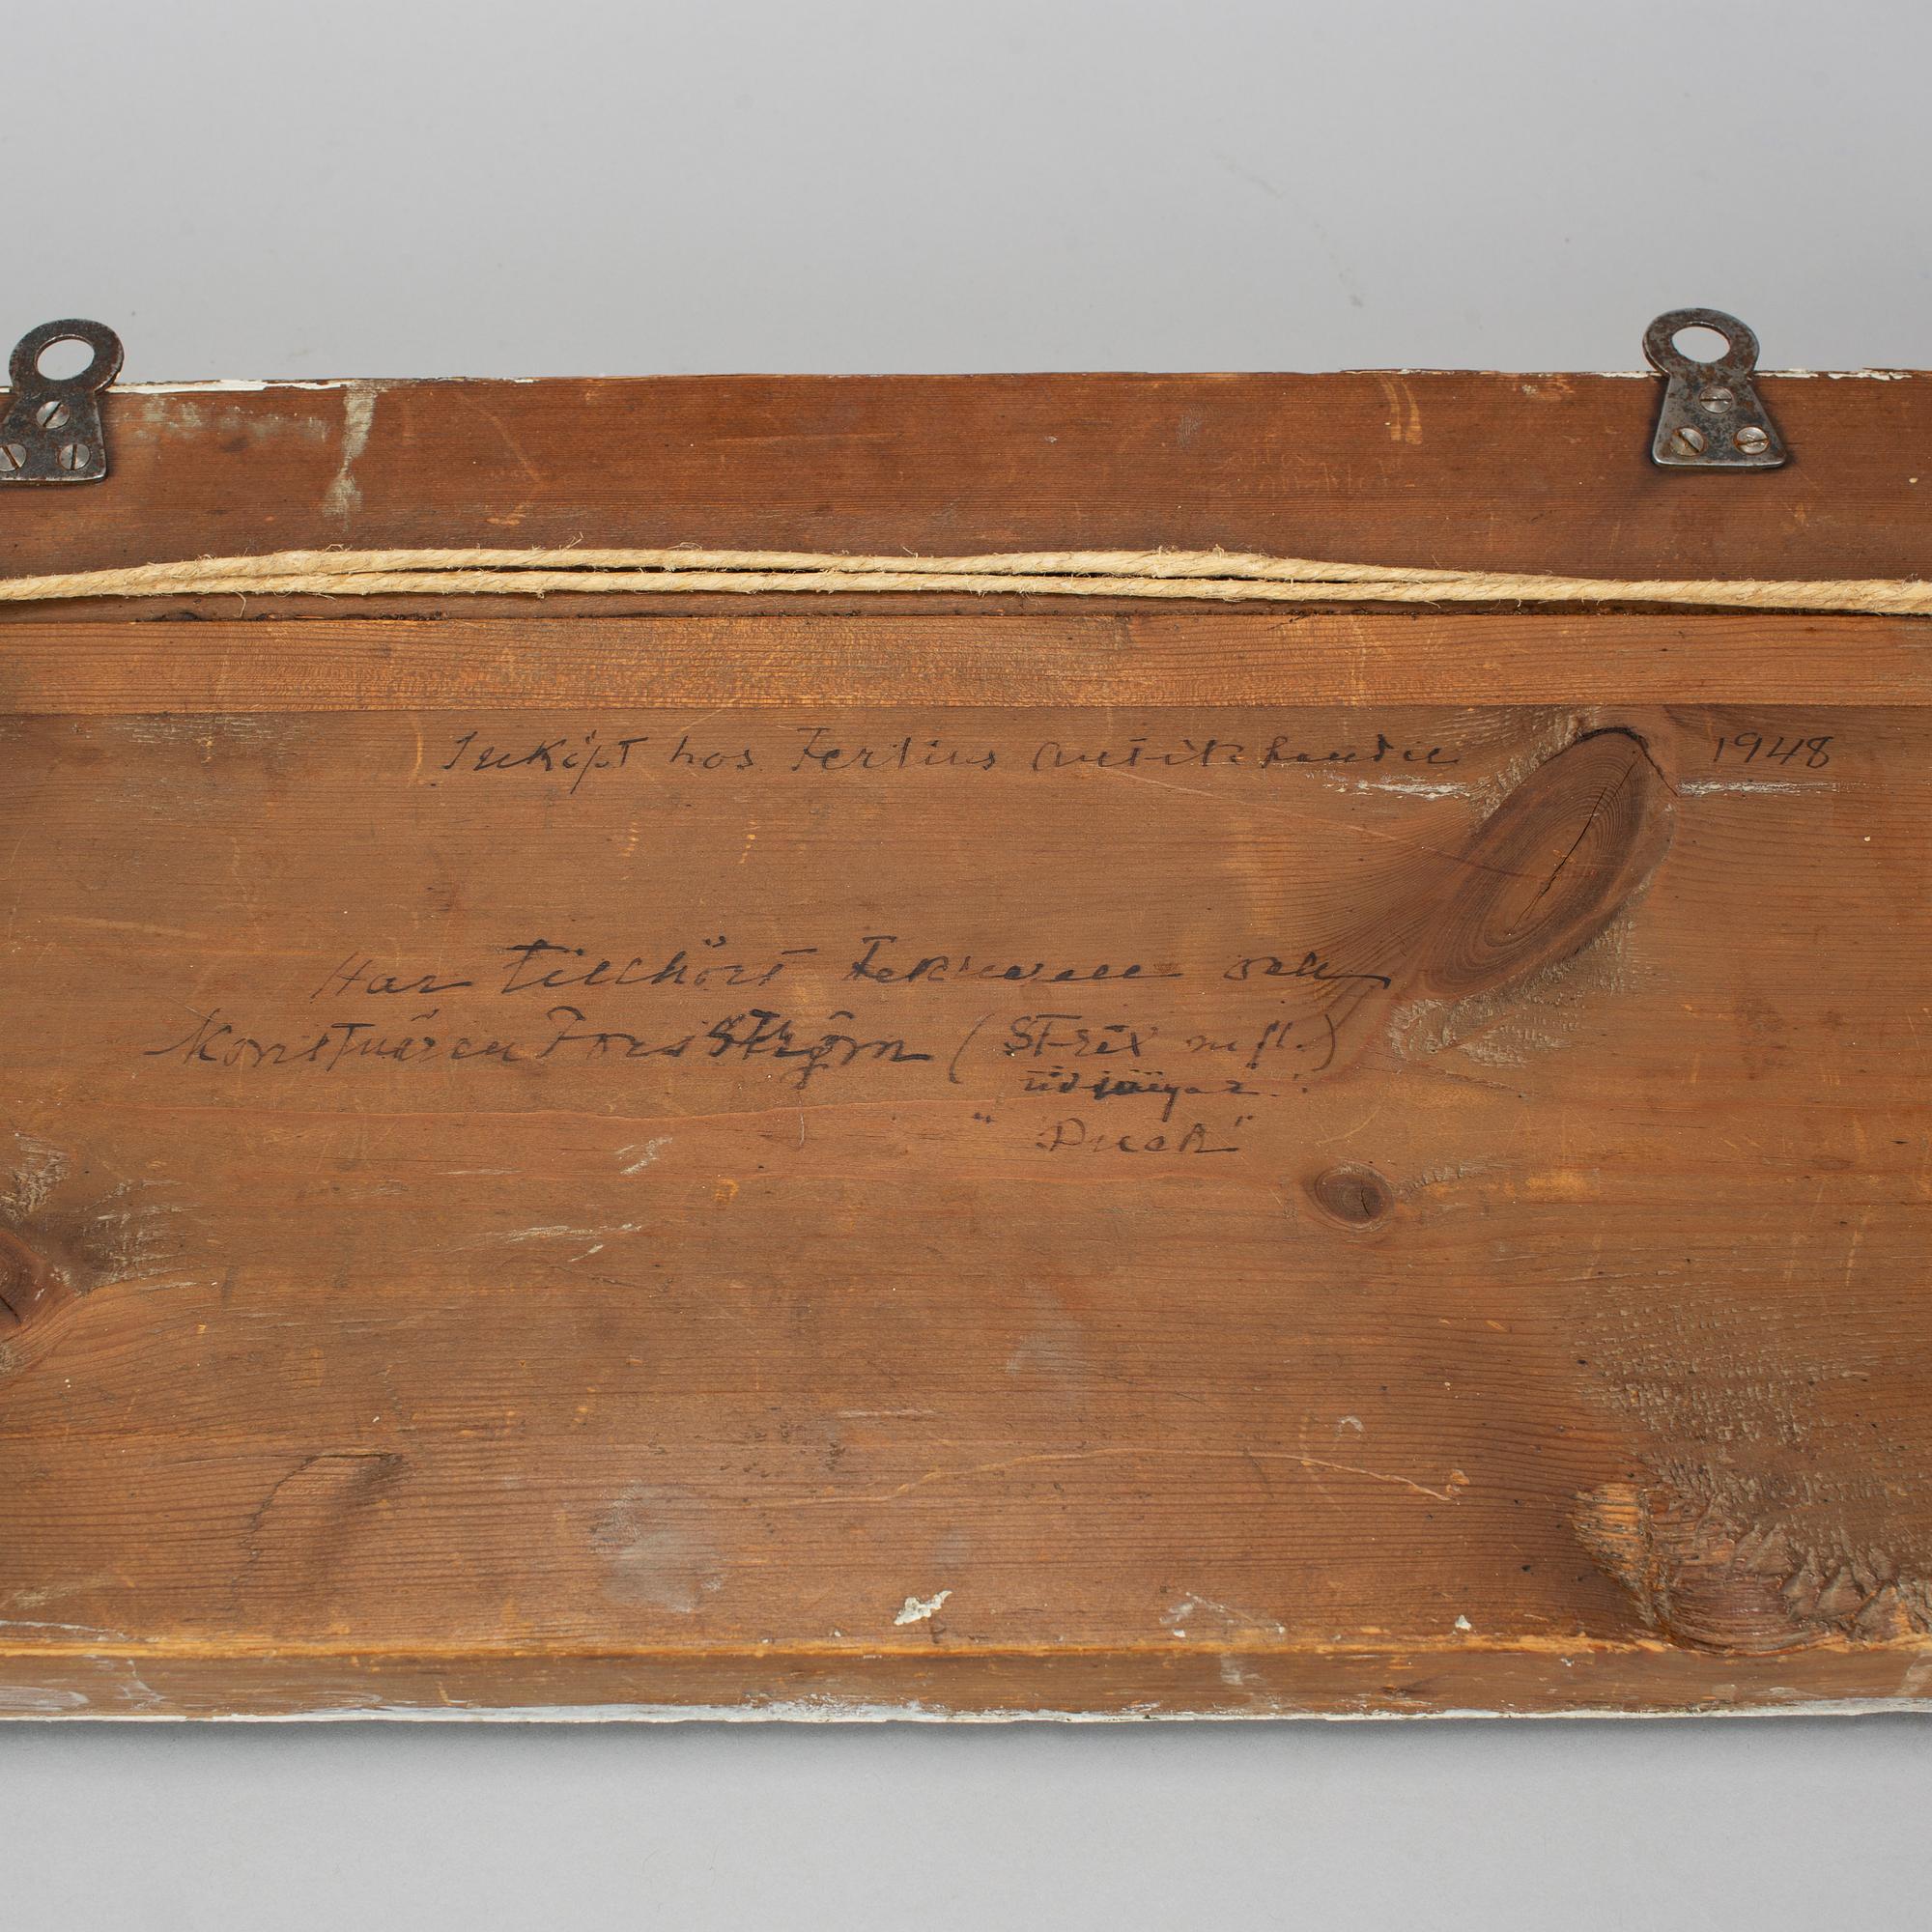 Inköpt hos Tertius Antikhandel 1948
Har tillhört Teknaren och
Konstnären Forsström (Strix m fl.)
tidningar.
"Puck"